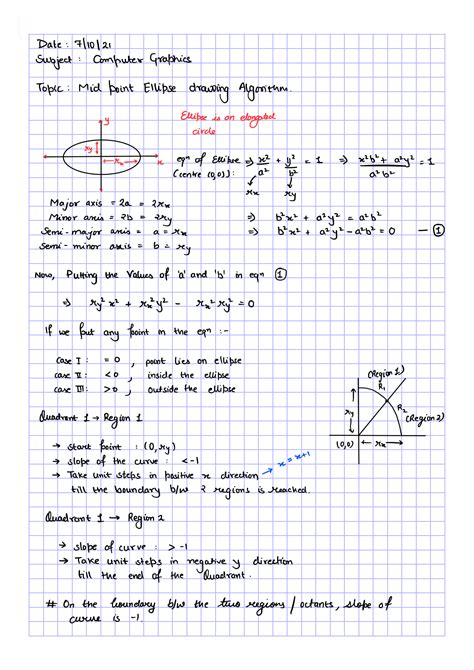 Date : 7/10/21
Subject : Computer Graphics
Topic : Mid point Ellipse drawing Algorithm.
Ellipse is an elongated
circle
y
ry
rx
x
eqⁿ of Ellipse ⇒ x²/a² + y²/b² = 1 ⇒ (x²b² + a²y²)/a²b² = 1
(centre (0,0)) :
rx ry
Major axis = 2a = 2rx
Minor axis = 2b = 2ry ⇒ b²x² + a²y² = a²b²
Semi-major axis = a = rx ⇒ b²x² + a²y² - a²b² = 0 — ①
Semi-minor axis = b = ry
Now, Putting the Values of 'a' and 'b' in eqⁿ ①
⇒ ry²x² + rx²y² - rx²ry² = 0
If we put any point in the eqⁿ :-
Case I : = 0 , point lies on ellipse
Case II : < 0 , inside the ellipse
Case III : > 0 , outside the ellipse
(Region 1)
R1
R2
(Region 2)
ry
(0,0)
rx
Quadrant 1 → Region 1
→ start point : (0, ry)
→ slope of the curve : < -1
→ Take unit steps in positive x direction → x = x+1
till the boundary b/w 2 regions is reached.
Quadrant 1 → Region 2
→ slope of curve : > -1
→ Take unit steps in negative y direction
till the end of the Quadrant.
# On the boundary b/w the two regions / octants, slope of
curve is -1.